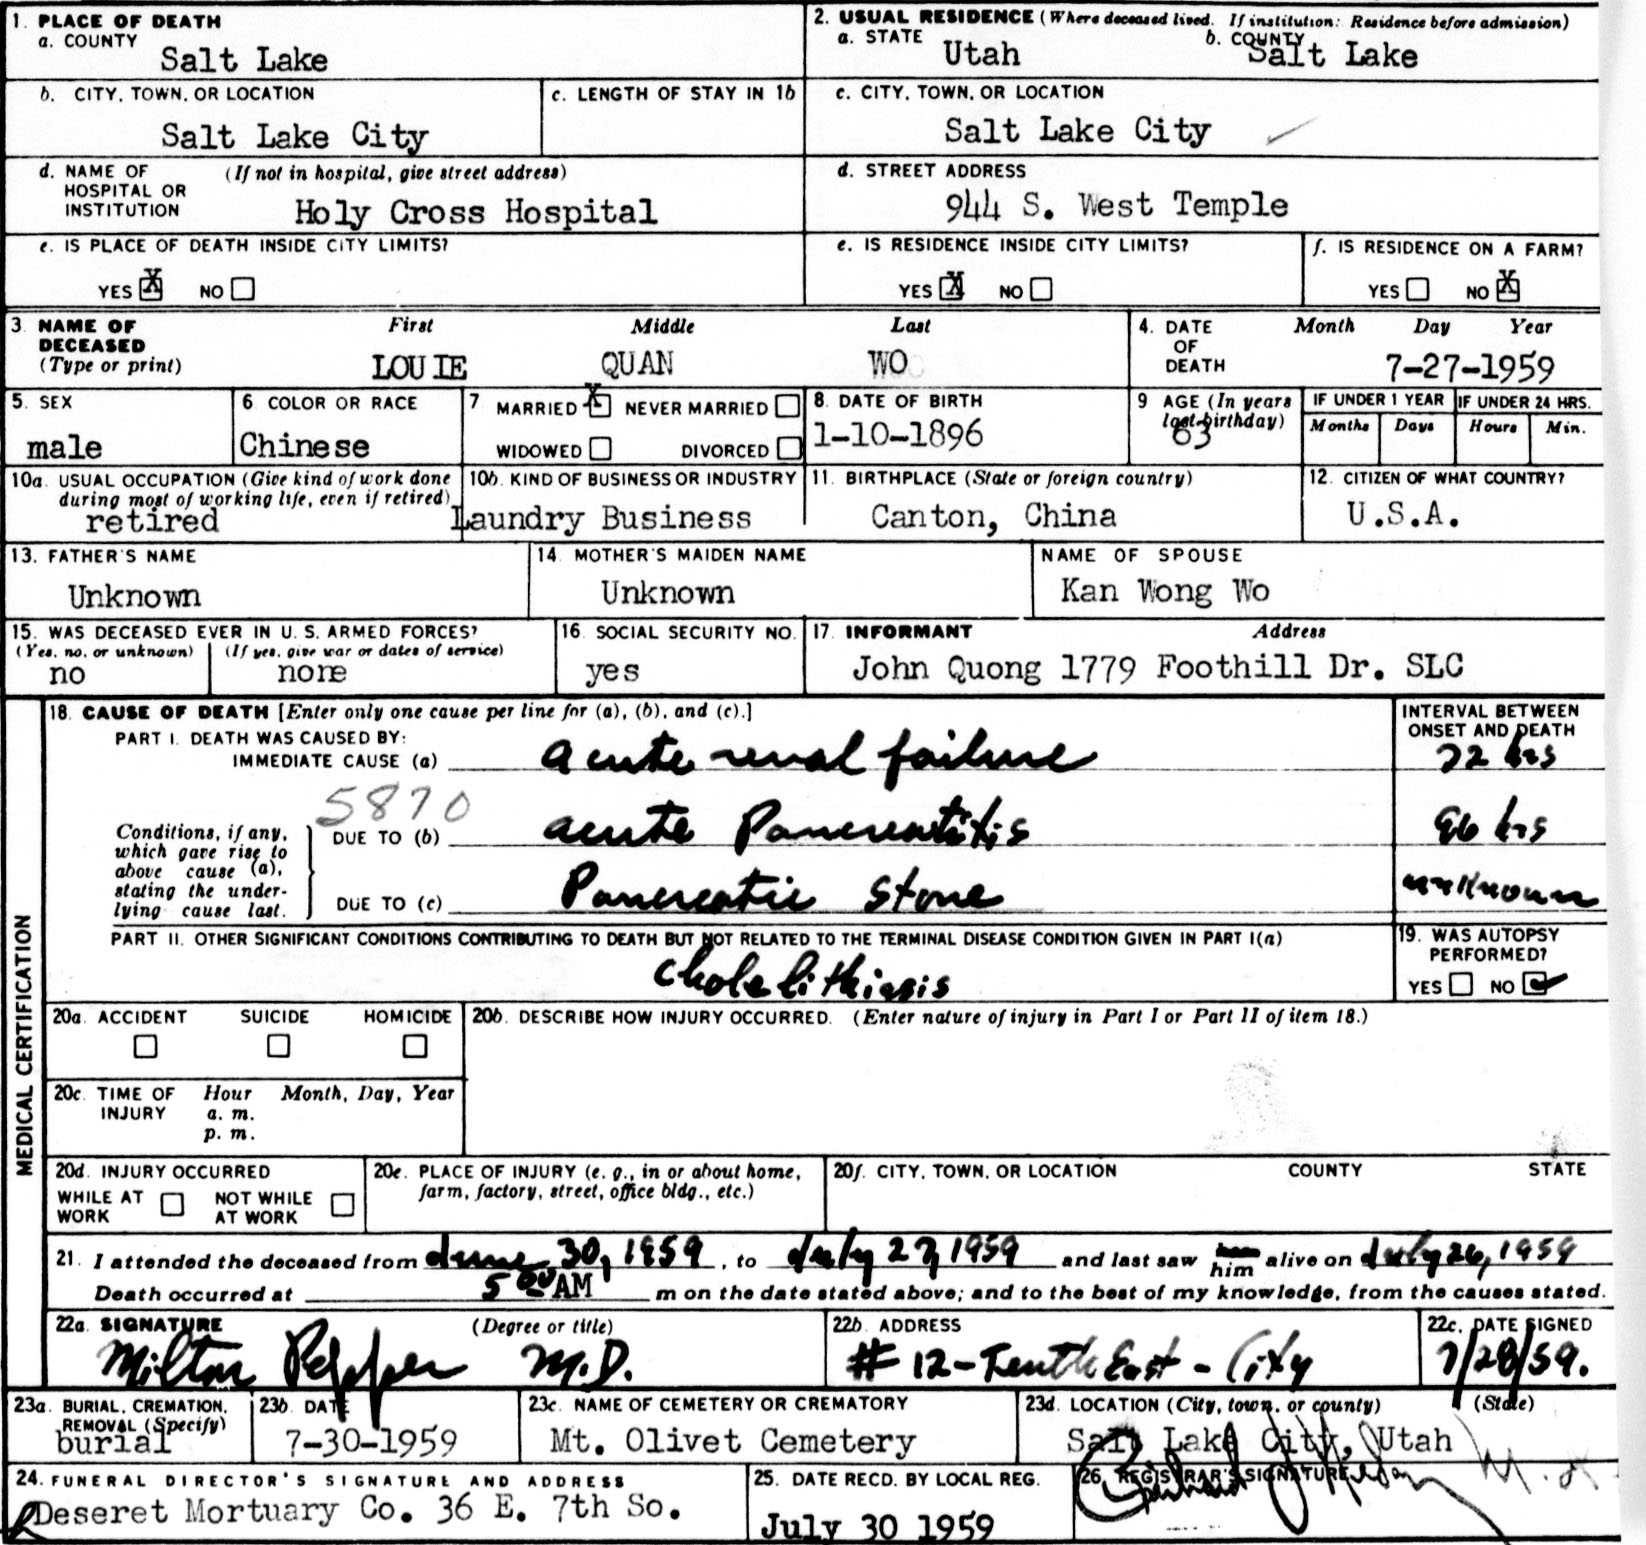 1. PLACE OF DEATH
a. COUNTY
Salt Lake
2. USUAL RESIDENCE (Where deceased lived. If institution: Residence before admission)
a. STATE Utah b. COUNTY Salt Lake
b. CITY, TOWN, OR LOCATION
Salt Lake City
c. LENGTH OF STAY IN 1b
c. CITY, TOWN, OR LOCATION
Salt Lake City
d. NAME OF HOSPITAL OR INSTITUTION (If not in hospital, give street address)
Holy Cross Hospital
d. STREET ADDRESS
944 S. West Temple
e. IS PLACE OF DEATH INSIDE CITY LIMITS?
YES X NO
e. IS RESIDENCE INSIDE CITY LIMITS?
YES X NO
f. IS RESIDENCE ON A FARM?
YES NO X
3. NAME OF DECEASED (Type or print)
First Middle Last
LOUIE QUAN WO
4. DATE OF DEATH
Month Day Year
7-27-1959
5. SEX
male
6. COLOR OR RACE
Chinese
7 MARRIED X NEVER MARRIED
WIDOWED DIVORCED
8. DATE OF BIRTH
1-10-1896
9 AGE (In years last birthday)
63
IF UNDER 1 YEAR
Months Days
IF UNDER 24 HRS.
Hours Min.
10a. USUAL OCCUPATION (Give kind of work done during most of working life, even if retired)
retired
10b. KIND OF BUSINESS OR INDUSTRY
Laundry Business
11. BIRTHPLACE (State or foreign country)
Canton, China
12. CITIZEN OF WHAT COUNTRY?
U.S.A.
13. FATHER'S NAME
Unknown
14. MOTHER'S MAIDEN NAME
Unknown
NAME OF SPOUSE
Kan Wong Wo
15. WAS DECEASED EVER IN U. S. ARMED FORCES?
(Yes, no, or unknown) (If yes, give war or dates of service)
no none
16. SOCIAL SECURITY NO.
yes
17. INFORMANT Address
John Quong 1779 Foothill Dr. SLC
MEDICAL CERTIFICATION
18. CAUSE OF DEATH [Enter only one cause per line for (a), (b), and (c).]
INTERVAL BETWEEN ONSET AND DEATH
PART I. DEATH WAS CAUSED BY:
IMMEDIATE CAUSE (a) acute renal failure 72 hrs
5870
Conditions, if any, which gave rise to above cause (a), stating the underlying cause last.
DUE TO (b) acute Pancreatitis 96 hrs
DUE TO (c) Pancreatic Stone unknown
PART II. OTHER SIGNIFICANT CONDITIONS CONTRIBUTING TO DEATH BUT NOT RELATED TO THE TERMINAL DISEASE CONDITION GIVEN IN PART I(a)
Cholelithiasis
19. WAS AUTOPSY PERFORMED?
YES NO
20a. ACCIDENT SUICIDE HOMICIDE
20b. DESCRIBE HOW INJURY OCCURRED. (Enter nature of injury in Part I or Part II of item 18.)
20c. TIME OF INJURY Hour Month, Day, Year
a. m.
p. m.
20d. INJURY OCCURRED
WHILE AT WORK NOT WHILE AT WORK
20e. PLACE OF INJURY (e. g., in or about home, farm, factory, street, office bldg., etc.)
20f. CITY, TOWN, OR LOCATION COUNTY STATE
21. I attended the deceased from June 30, 1959, to July 27, 1959 and last saw him alive on July 26, 1959
Death occurred at 5 00 AM m on the date stated above; and to the best of my knowledge, from the causes stated.
22a. SIGNATURE (Degree or title)
Milton Pepper M.D.
22b. ADDRESS
# 12 - Tenth East - City
22c. DATE SIGNED
7/28/59.
23a. BURIAL, CREMATION, REMOVAL (Specify)
burial
23b. DATE
7-30-1959
23c. NAME OF CEMETERY OR CREMATORY
Mt. Olivet Cemetery
23d. LOCATION (City, town, or county) (State)
Salt Lake City, Utah
24. FUNERAL DIRECTOR'S SIGNATURE AND ADDRESS
Deseret Mortuary Co. 36 E. 7th So.
25. DATE RECD. BY LOCAL REG.
July 30 1959
26. REGISTRAR'S SIGNATURE